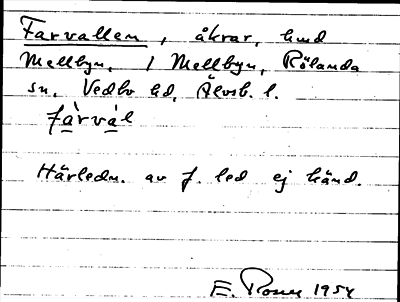 Farvallen, åkrar, und
Mellbyn, / Mellbyn, Rölanda
sn. Vedbo hd, Älvsb. l.
fàrvál
Härledn. av f. led ej känd.
E. 1954